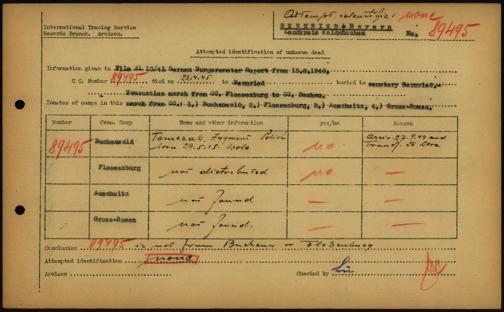 International Tracing Service
Records Branch. Arolsen.
Attempt identific: none
BERNRIED-Bavaria
Landkreis
No. 89495
Attempted identification of unknown dead
Information given in File AL 13/41 German Burgermeister Report from
C.C. Number 89495 died on 22.4.45 in Bernried buried in cemetery Bernried.
Evacuation march from CC. Flossenburg to CC. Dachau.
Inmates of camps in this march from CC.: 1,) Buchenwald, 2,) Flossenburg, 3,) Auschwitz, 4,) Gross-Rosen.
Number Conc. Camp Name and other information yes/no Remarks
89495 Buchenwald Tomczak, Zygmunt Polish no
born 29.5.15
Flossenburg not distributed no —
Auschwitz not found — —
Gross-Rosen not found. — —
Conclusion 89495 is not from Buchenw or Floßenburg
Attempted identification none
Arolsen Checked by